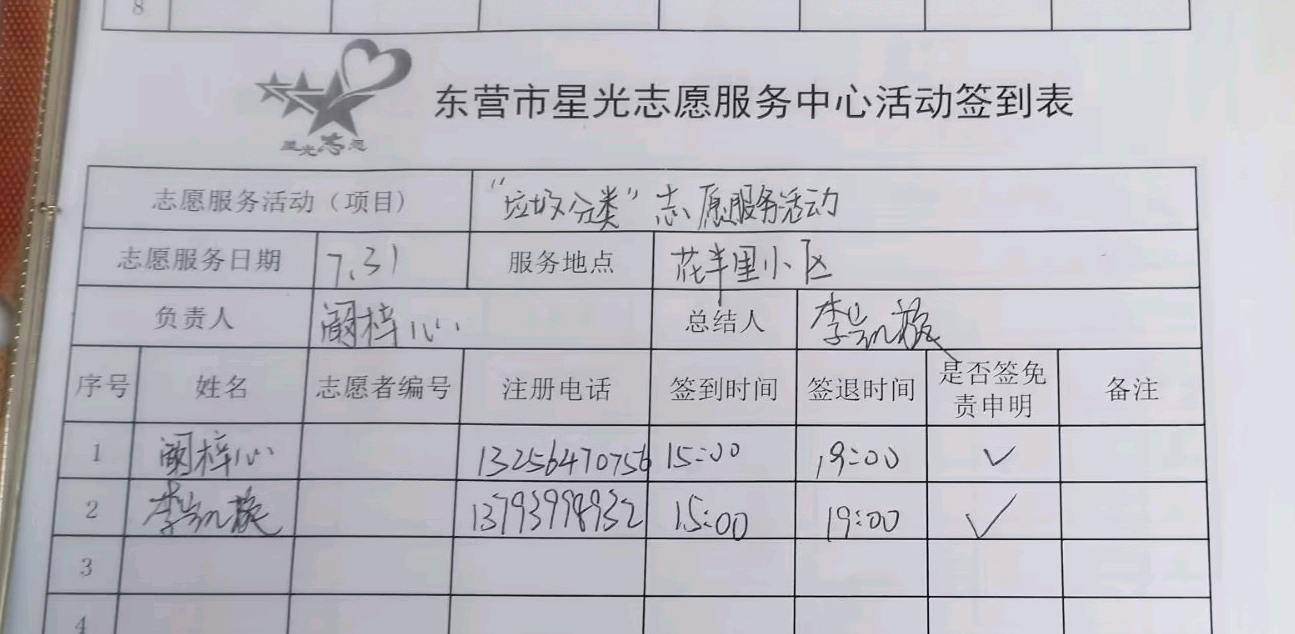 8
星光志愿
东营市星光志愿服务中心活动签到表
志愿服务活动（项目） "垃圾分类"志愿服务活动
志愿服务日期 7.31 服务地点 花半里小区
负责人 阚梓心 总结人 李凯旋
序号 姓名 志愿者编号 注册电话 签到时间 签退时间 是否签免责申明 备注
1 阚梓心 13256470756 15:00 19:00 ✓
2 李凯旋 13793998932 15:00 19:00 ✓
3
4